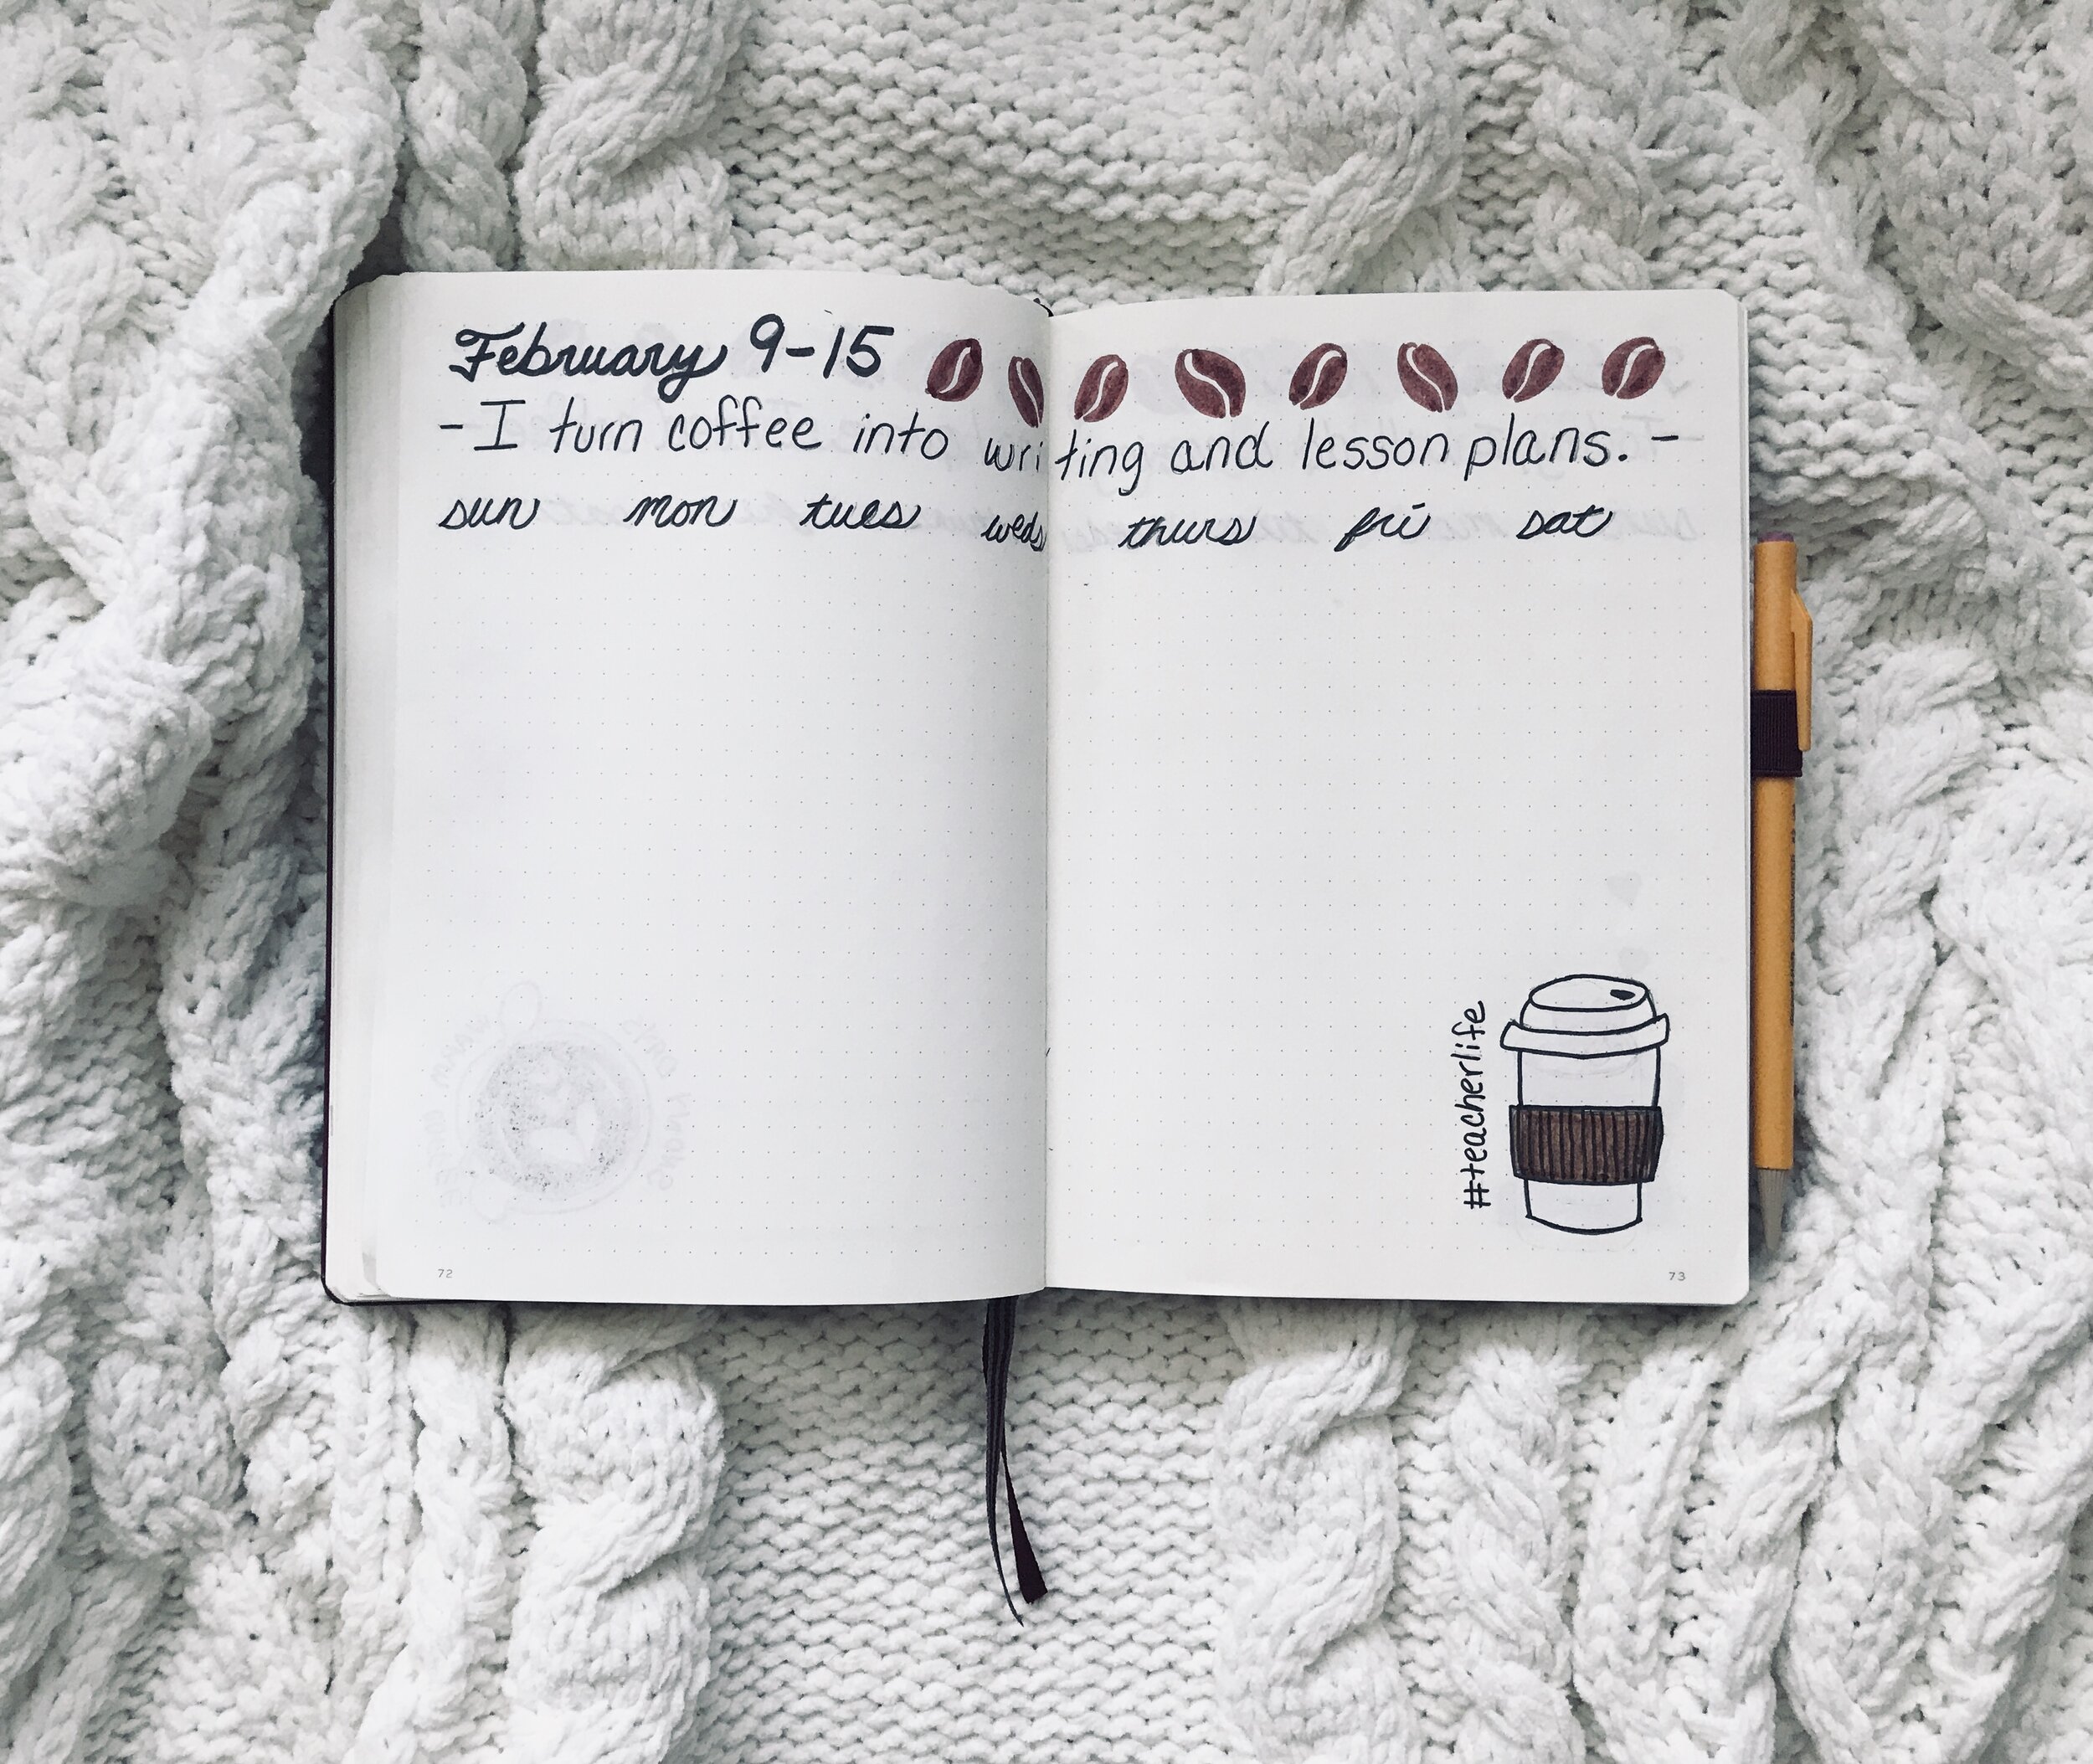 February 9-15
-I turn coffee into writing and lesson plans.-
sun mon tues weds thurs fri sat
#teacherlife
72
73